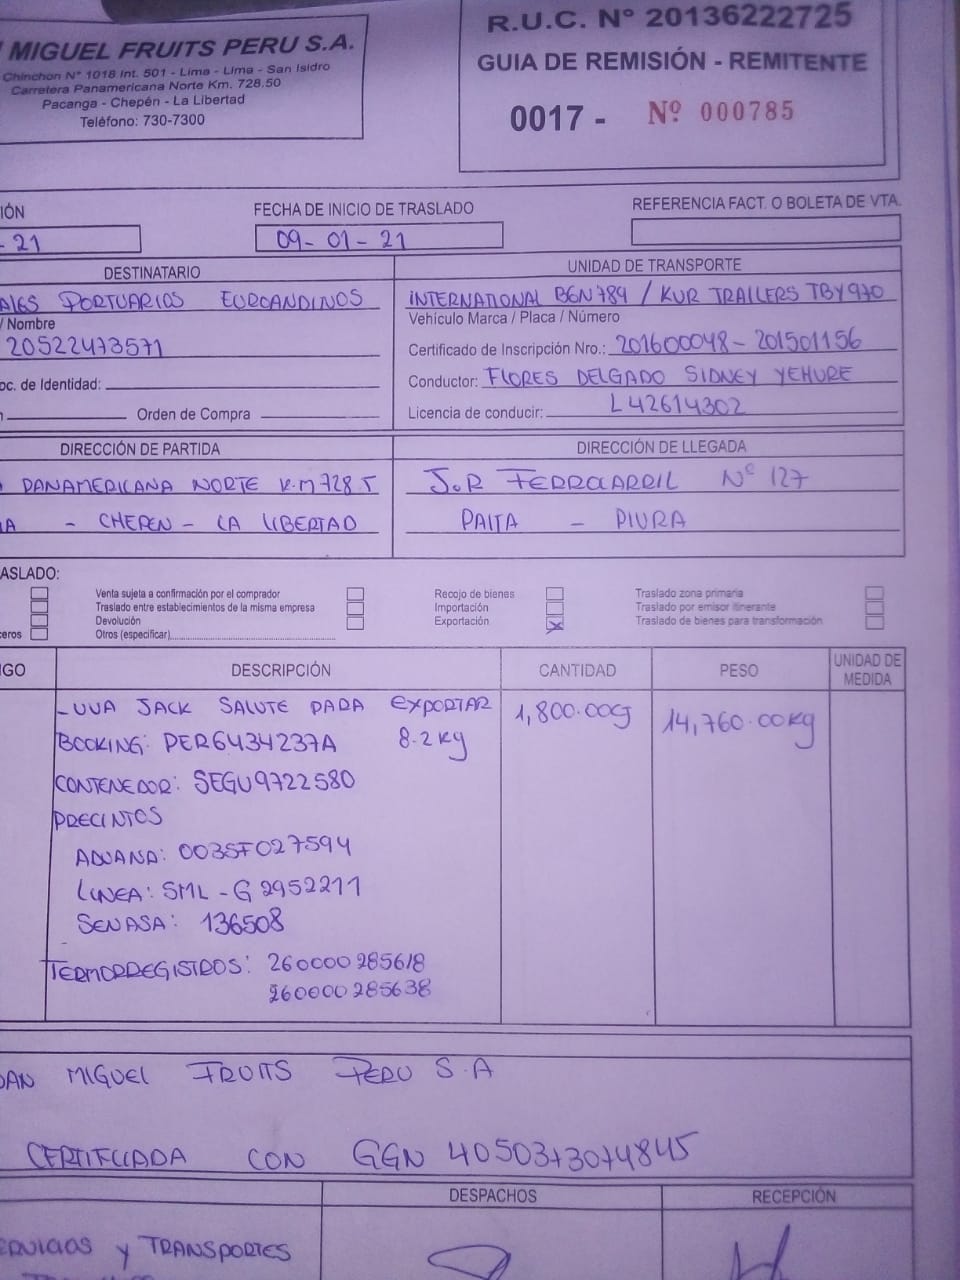 MIGUEL FRUITS PERU S.A.
Chinchon N° 1018 Int. 501 - Lima - Lima - San Isidro
Carretera Panamericana Norte Km. 728.50
Pacanga - Chepén - La Libertad
Teléfono: 730-7300
R.U.C. N° 20136222725
GUIA DE REMISIÓN - REMITENTE
0017 - Nº 000785
IÓN
- 21
FECHA DE INICIO DE TRASLADO
09-01-21
REFERENCIA FACT. O BOLETA DE VTA.
DESTINATARIO
ALES PORTUARIOS EUROANDINOS
/ Nombre
20522473571
oc. de Identidad:
Orden de Compra
UNIDAD DE TRANSPORTE
INTERNATIONAL BGN789 / KUR TRAILERS TBY970
Vehículo Marca / Placa / Número
Certificado de Inscripción Nro.: 201600048-201501156
Conductor: FLORES DELGADO SIDNEY YEHURE
Licencia de conducir: L42614302
DIRECCIÓN DE PARTIDA
PANAMERICANA NORTE K.M 728.5
A - CHEPEN - LA LIBERTAD
DIRECCIÓN DE LLEGADA
J.R FERROCARRIL N° 127
PAITA - PIURA
ASLADO:
Venta sujeta a confirmación por el comprador
Traslado entre establecimientos de la misma empresa
Devolución
ceros
Otros (especificar)
Recojo de bienes
Importación
Exportación X
Traslado zona primaria
Traslado por emisor itinerante
Traslado de bienes para transformación
IGO DESCRIPCIÓN CANTIDAD PESO UNIDAD DE MEDIDA
- UVA JACK SALUTE PARA EXPORTAR 1,800.00CJ 14,760.00Kg
BOOKING: PER6434237A 8.2 Kg
CONTENEDOR: SEGU9722580
PRECINTOS
ADUANA: 0035F027594
LINEA: SML-G2952211
SENASA: 136508
TERMORREGISTROS: 260000285618
260000285638
SAN MIGUEL FRUITS PERU S.A
CERTIFICADA CON GGN 4050373074845
DESPACHOS
RECEPCIÓN
ERVICIOS Y TRANSPORTES